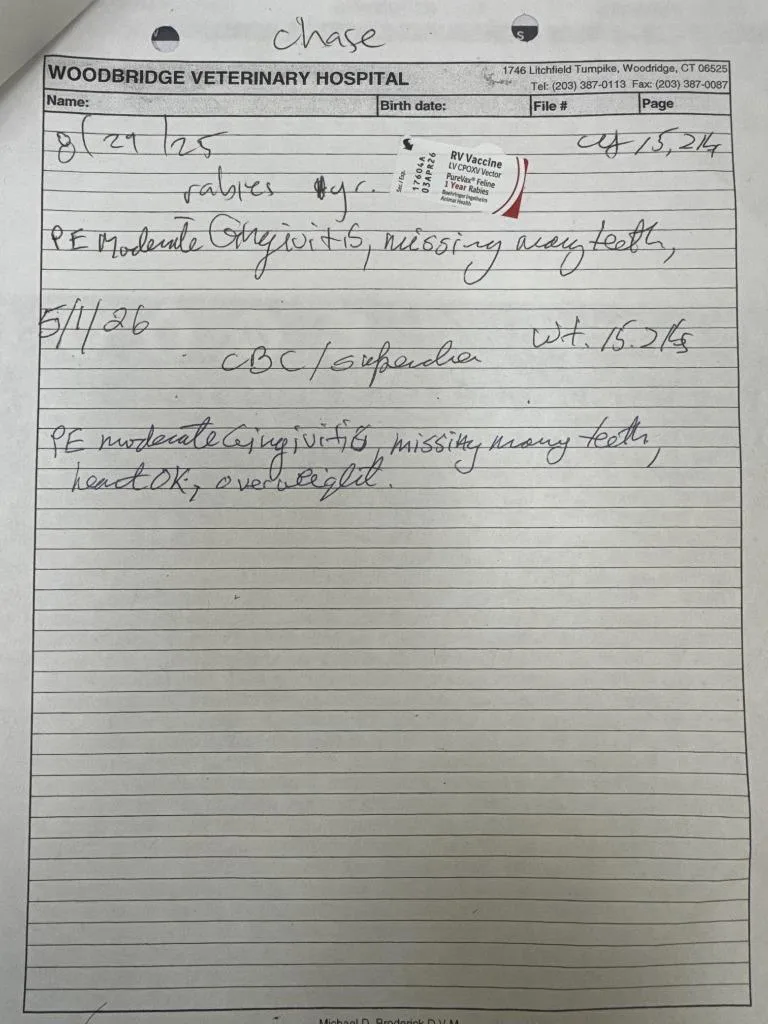 chase
WOODBRIDGE VETERINARY HOSPITAL
1746 Litchfield Turnpike, Woodridge, CT 06525
Tel: (203) 387-0113 Fax: (203) 387-0087
Name:
Birth date:
File #
Page
8/29/25
15,2
rabies yr.
Ser./Exp.
17604A
03APR26
RV Vaccine
LV CPOXV Vector
PureVax® Feline
1 Year Rabies
Boehringer Ingelheim
Animal Health
PE Moderate Gingivitis, missing many teeth,
5/1/26
wt. 15.2
CBC/superchem
PE moderate Gingivitis, missing many teeth,
heart OK, overweight.
Michael D. Broderick D.V.M.